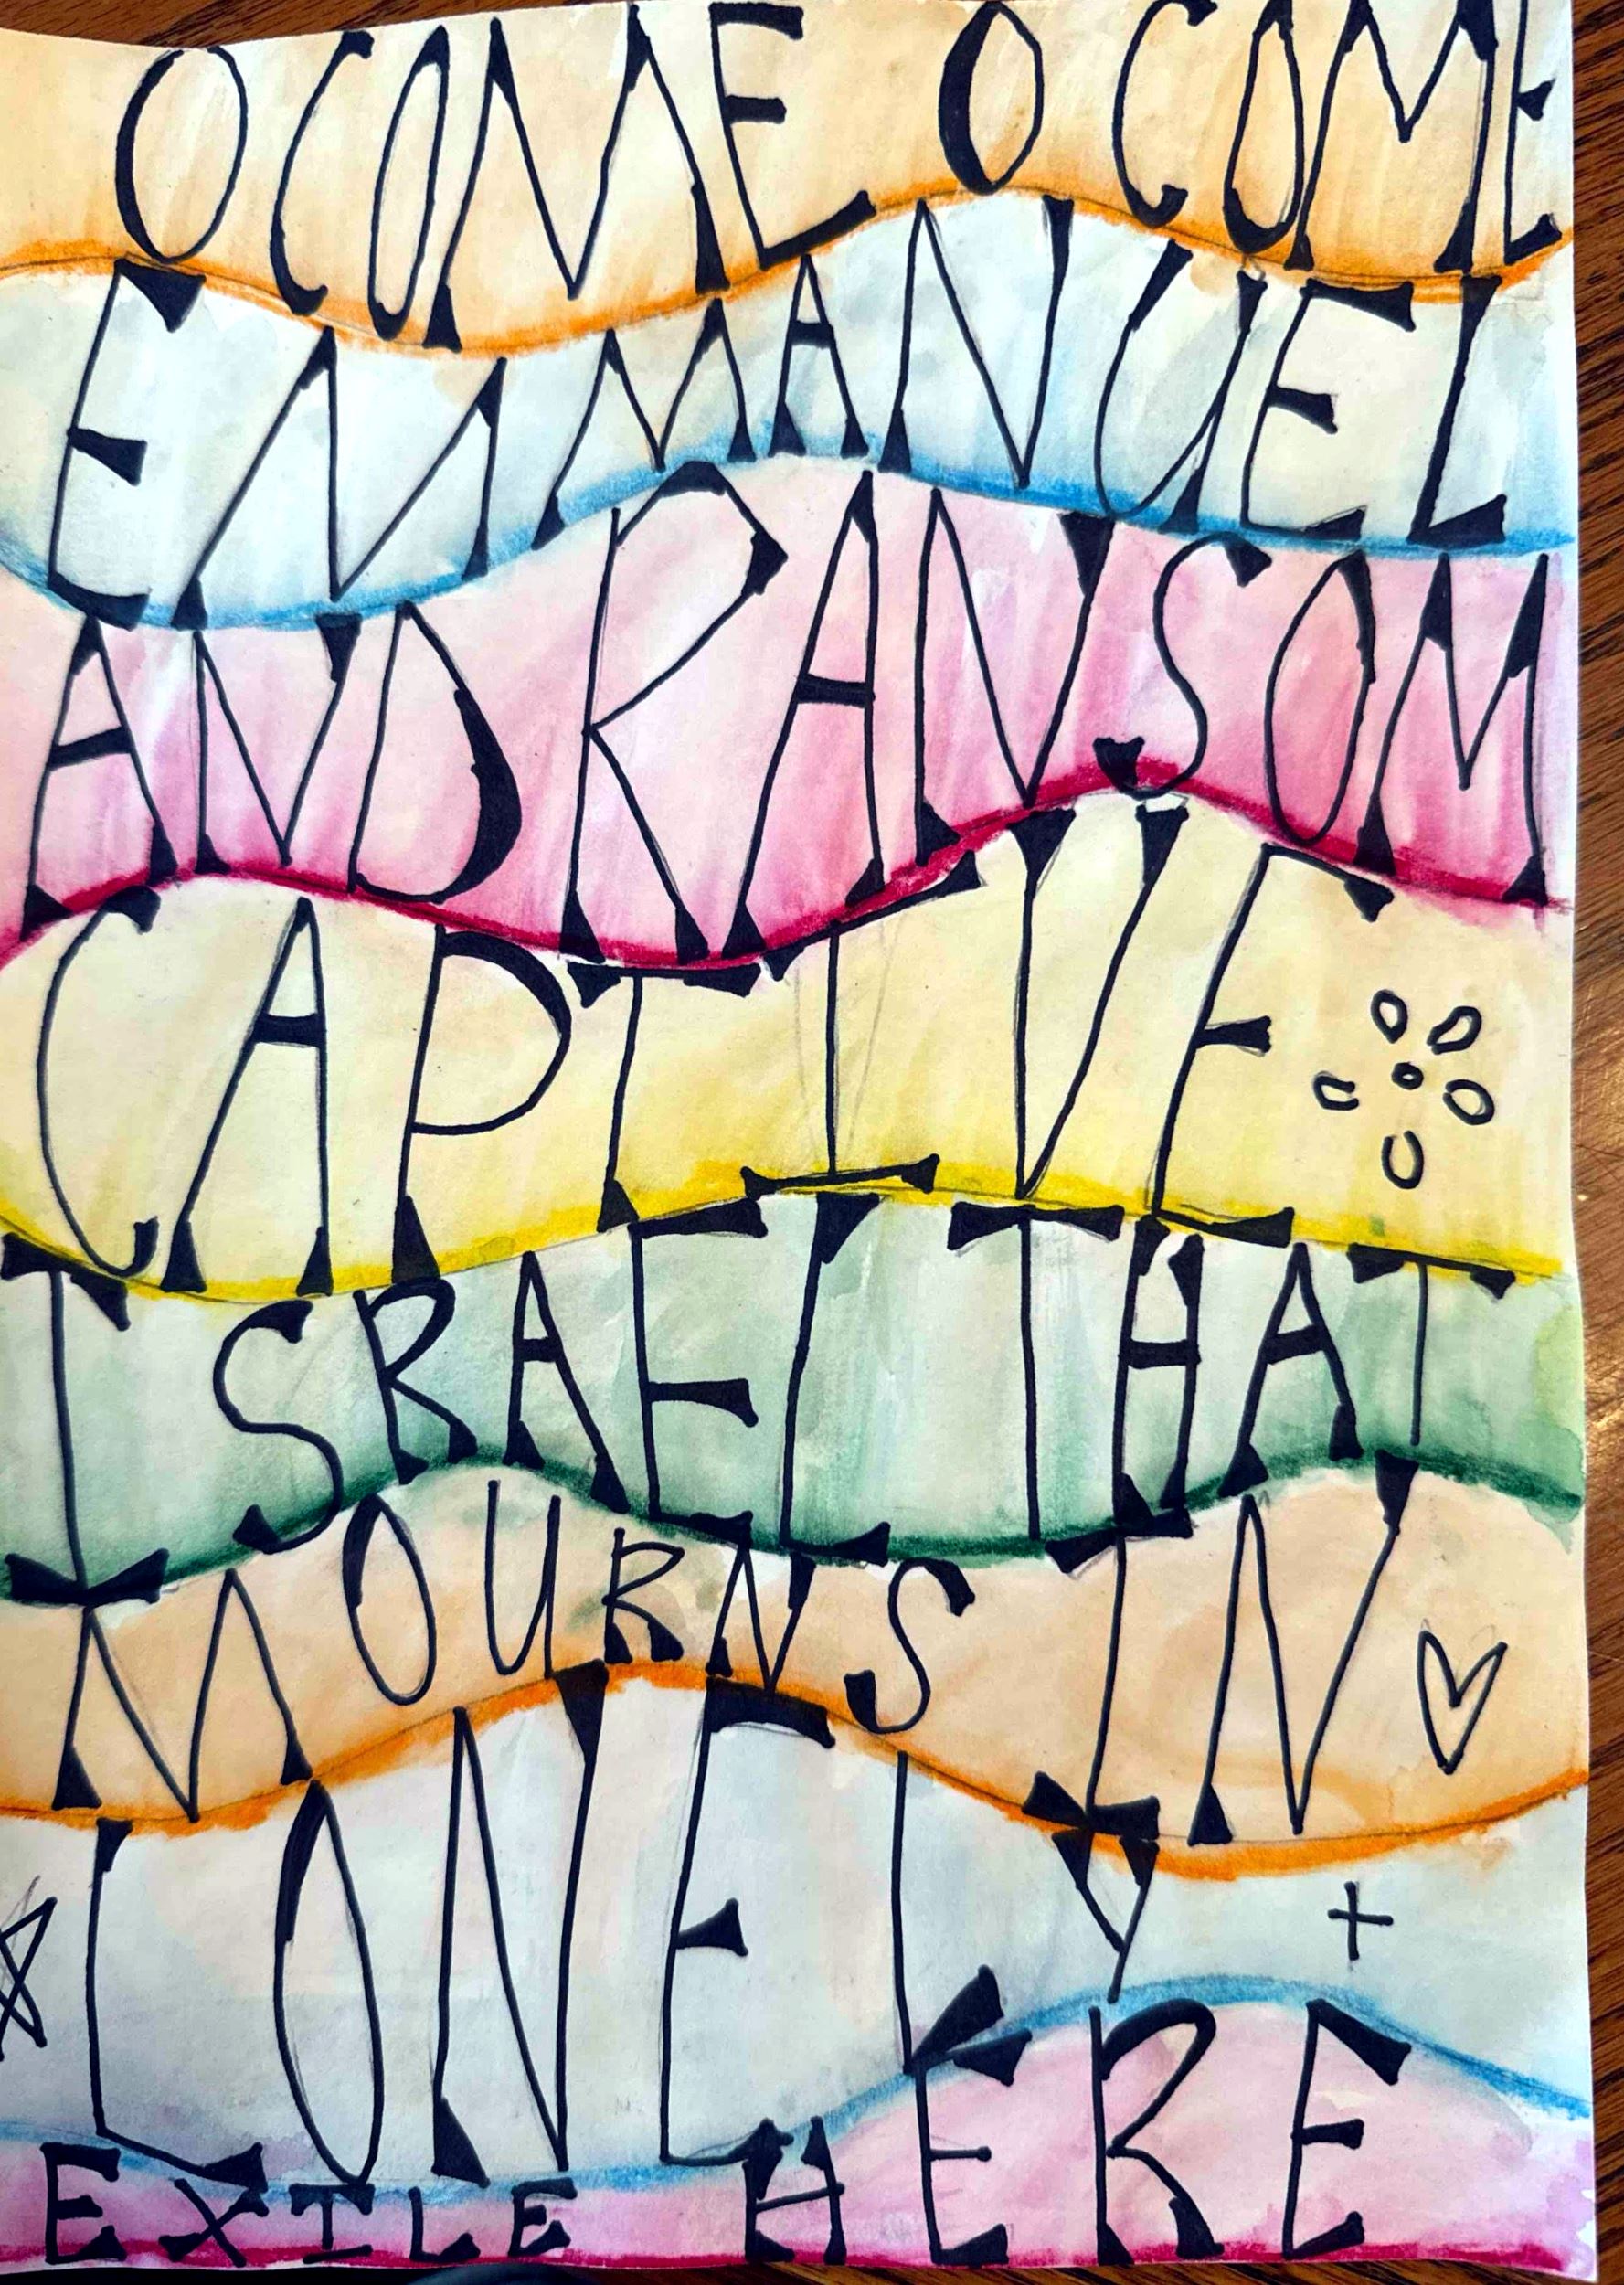 O COME O COME
EMMANUEL
AND RANSOM
CAPTIVE
ISRAEL THAT
MOURNS IN
LONELY
EXILE HERE